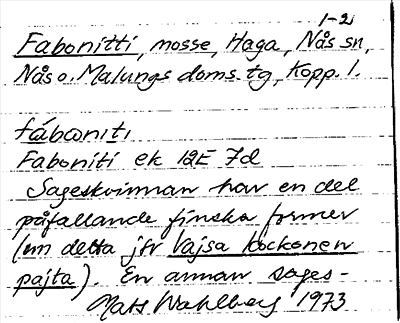 1-2
Fabonitti, mosse, Haga, Nås sn,
Nås o. Malungs doms. tg, Kopp. l.
fábɷnit,
Faboniti ek 12E 7d
Sageskvinnan har en del
påfallande finska former
(om detta jfr Vajsa kockonen
pajta). En annan sages-
Mats Wahlberg 1973